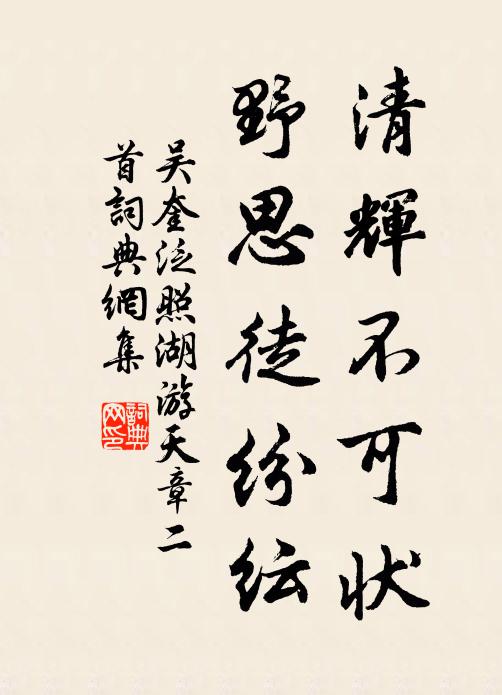 清輝不可狀
野思徒紛紜
吴奎泛照湖游天章二
首詞典網集
詞典
网印